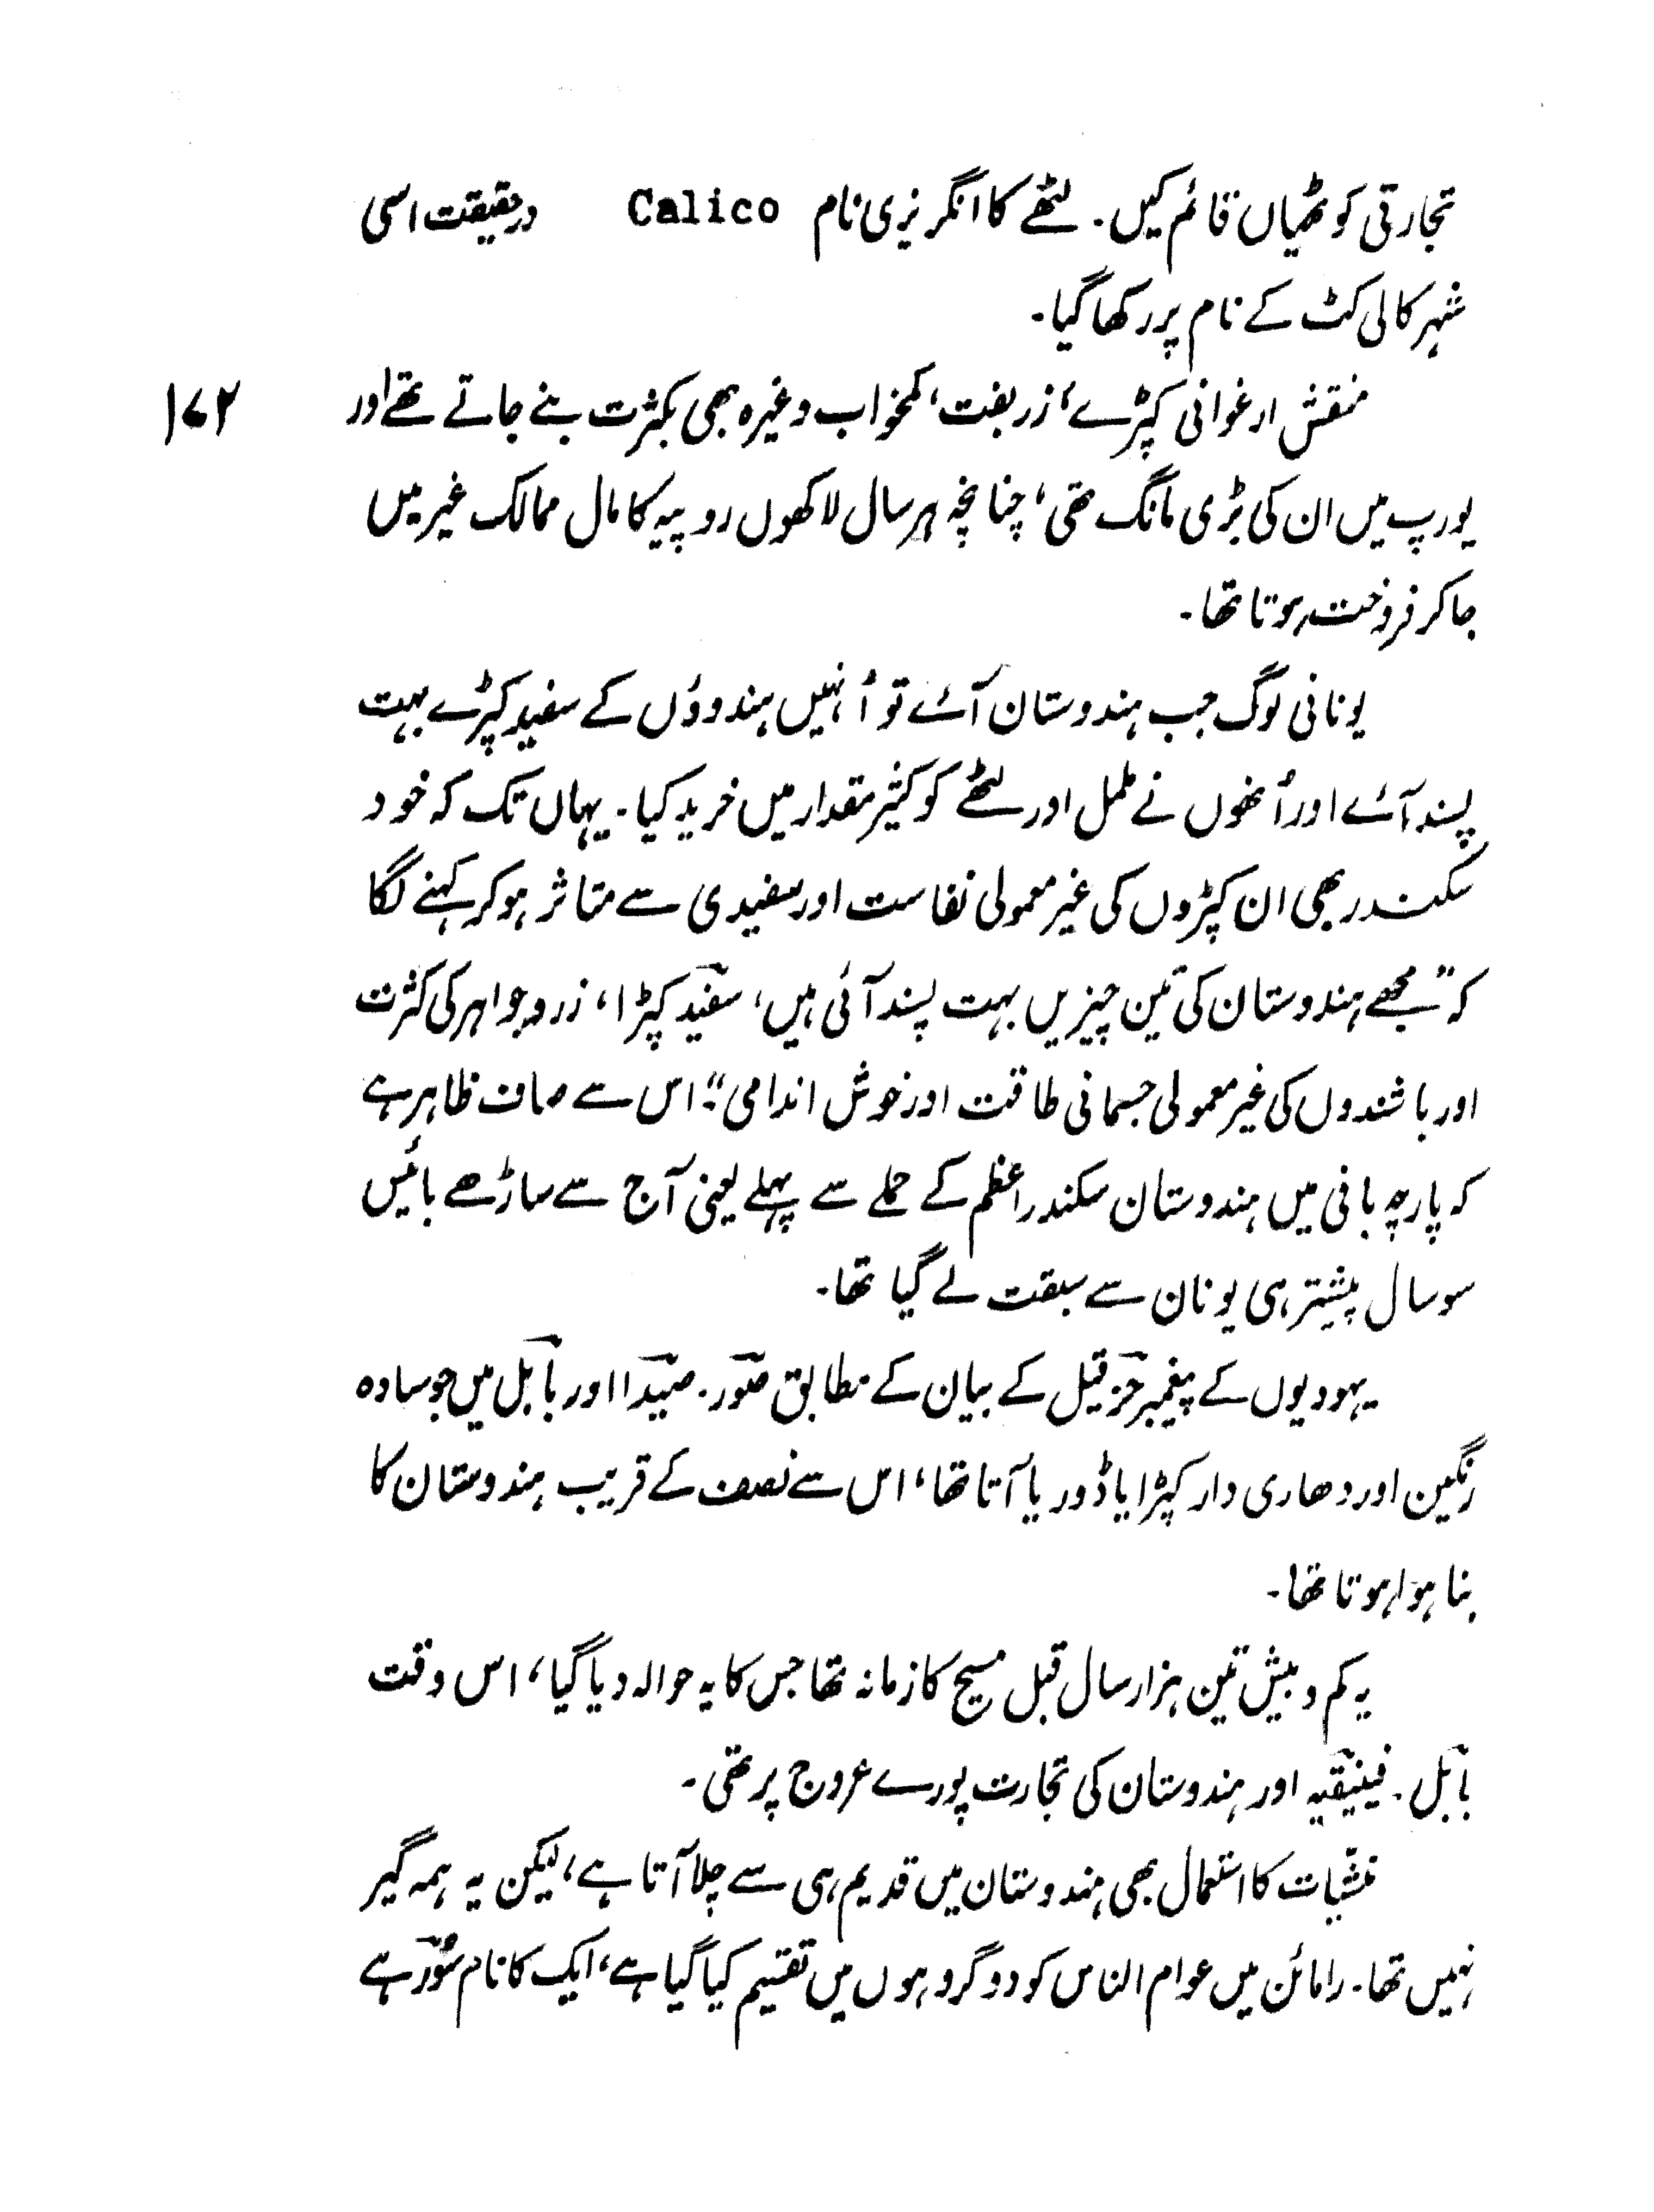 تجارتی کوٹھیاں قائم کیں۔ لٹھے کا انگریزی نام Calico درحقیقت اسی
شہر کالی کٹ کے نام پر رکھا گیا۔
منقش ارغوانی کپڑے، زربفت، کمخواب وغیرہ بھی بکثرت بنے جاتے تھے اور
۱۷۲
یورپ میں ان کی بڑی مانگ تھی، چنانچہ ہر سال لاکھوں روپیہ کا مال ممالک غیر میں
جا کر فروخت ہوتا تھا۔
یونانی لوگ جب ہندوستان آئے تو اُنہیں ہندوؤں کے سفید کپڑے بہت
پسند آئے اور اُنھوں نے ململ اور لٹھے کو کثیر مقدار میں خرید کیا۔ یہاں تک کہ خود
سکندر بھی ان کپڑوں کی غیر معمولی نفاست اور سفیدی سے متاثر ہو کر کہنے لگا
کہ "مجھے ہندوستان کی تین چیزیں بہت پسند آئی ہیں، سفید کپڑا، زر و جواہر کی کثرت
اور باشندوں کی غیر معمولی جسمانی طاقت اور خوش اندامی"۔ اس سے صاف ظاہر ہے
کہ پارچہ بافی میں ہندوستان سکندر اعظم کے حملے سے پہلے یعنی آج سے ساڑھے بائیس
سو سال پیشتر ہی یونان سے سبقت لے گیا تھا۔
یہودیوں کے پیغمبر حزقیل کے بیان کے مطابق صور۔ صیدا اور بابل میں جو سادہ
رنگین اور دھاری دار کپڑا یا ڈوریا آتا تھا، اس سے نصف کے قریب ہندوستان کا
بنا ہوا ہوتا تھا۔
یہ کم و بیش تین ہزار سال قبل مسیح کا زمانہ تھا جس کا یہ حوالہ دیا گیا، اس وقت
بابل۔ فینیقیہ اور ہندوستان کی تجارت پورے عروج پر تھی۔
منشّیات کا استعمال بھی ہندوستان میں قدیم ہی سے چلا آتا ہے، لیکن یہ ہمہ گیر
نہیں تھا۔ رامائن میں عوام الناس کو دو گروہوں میں تقسیم کیا گیا ہے، ایک کا نام سُور ہے